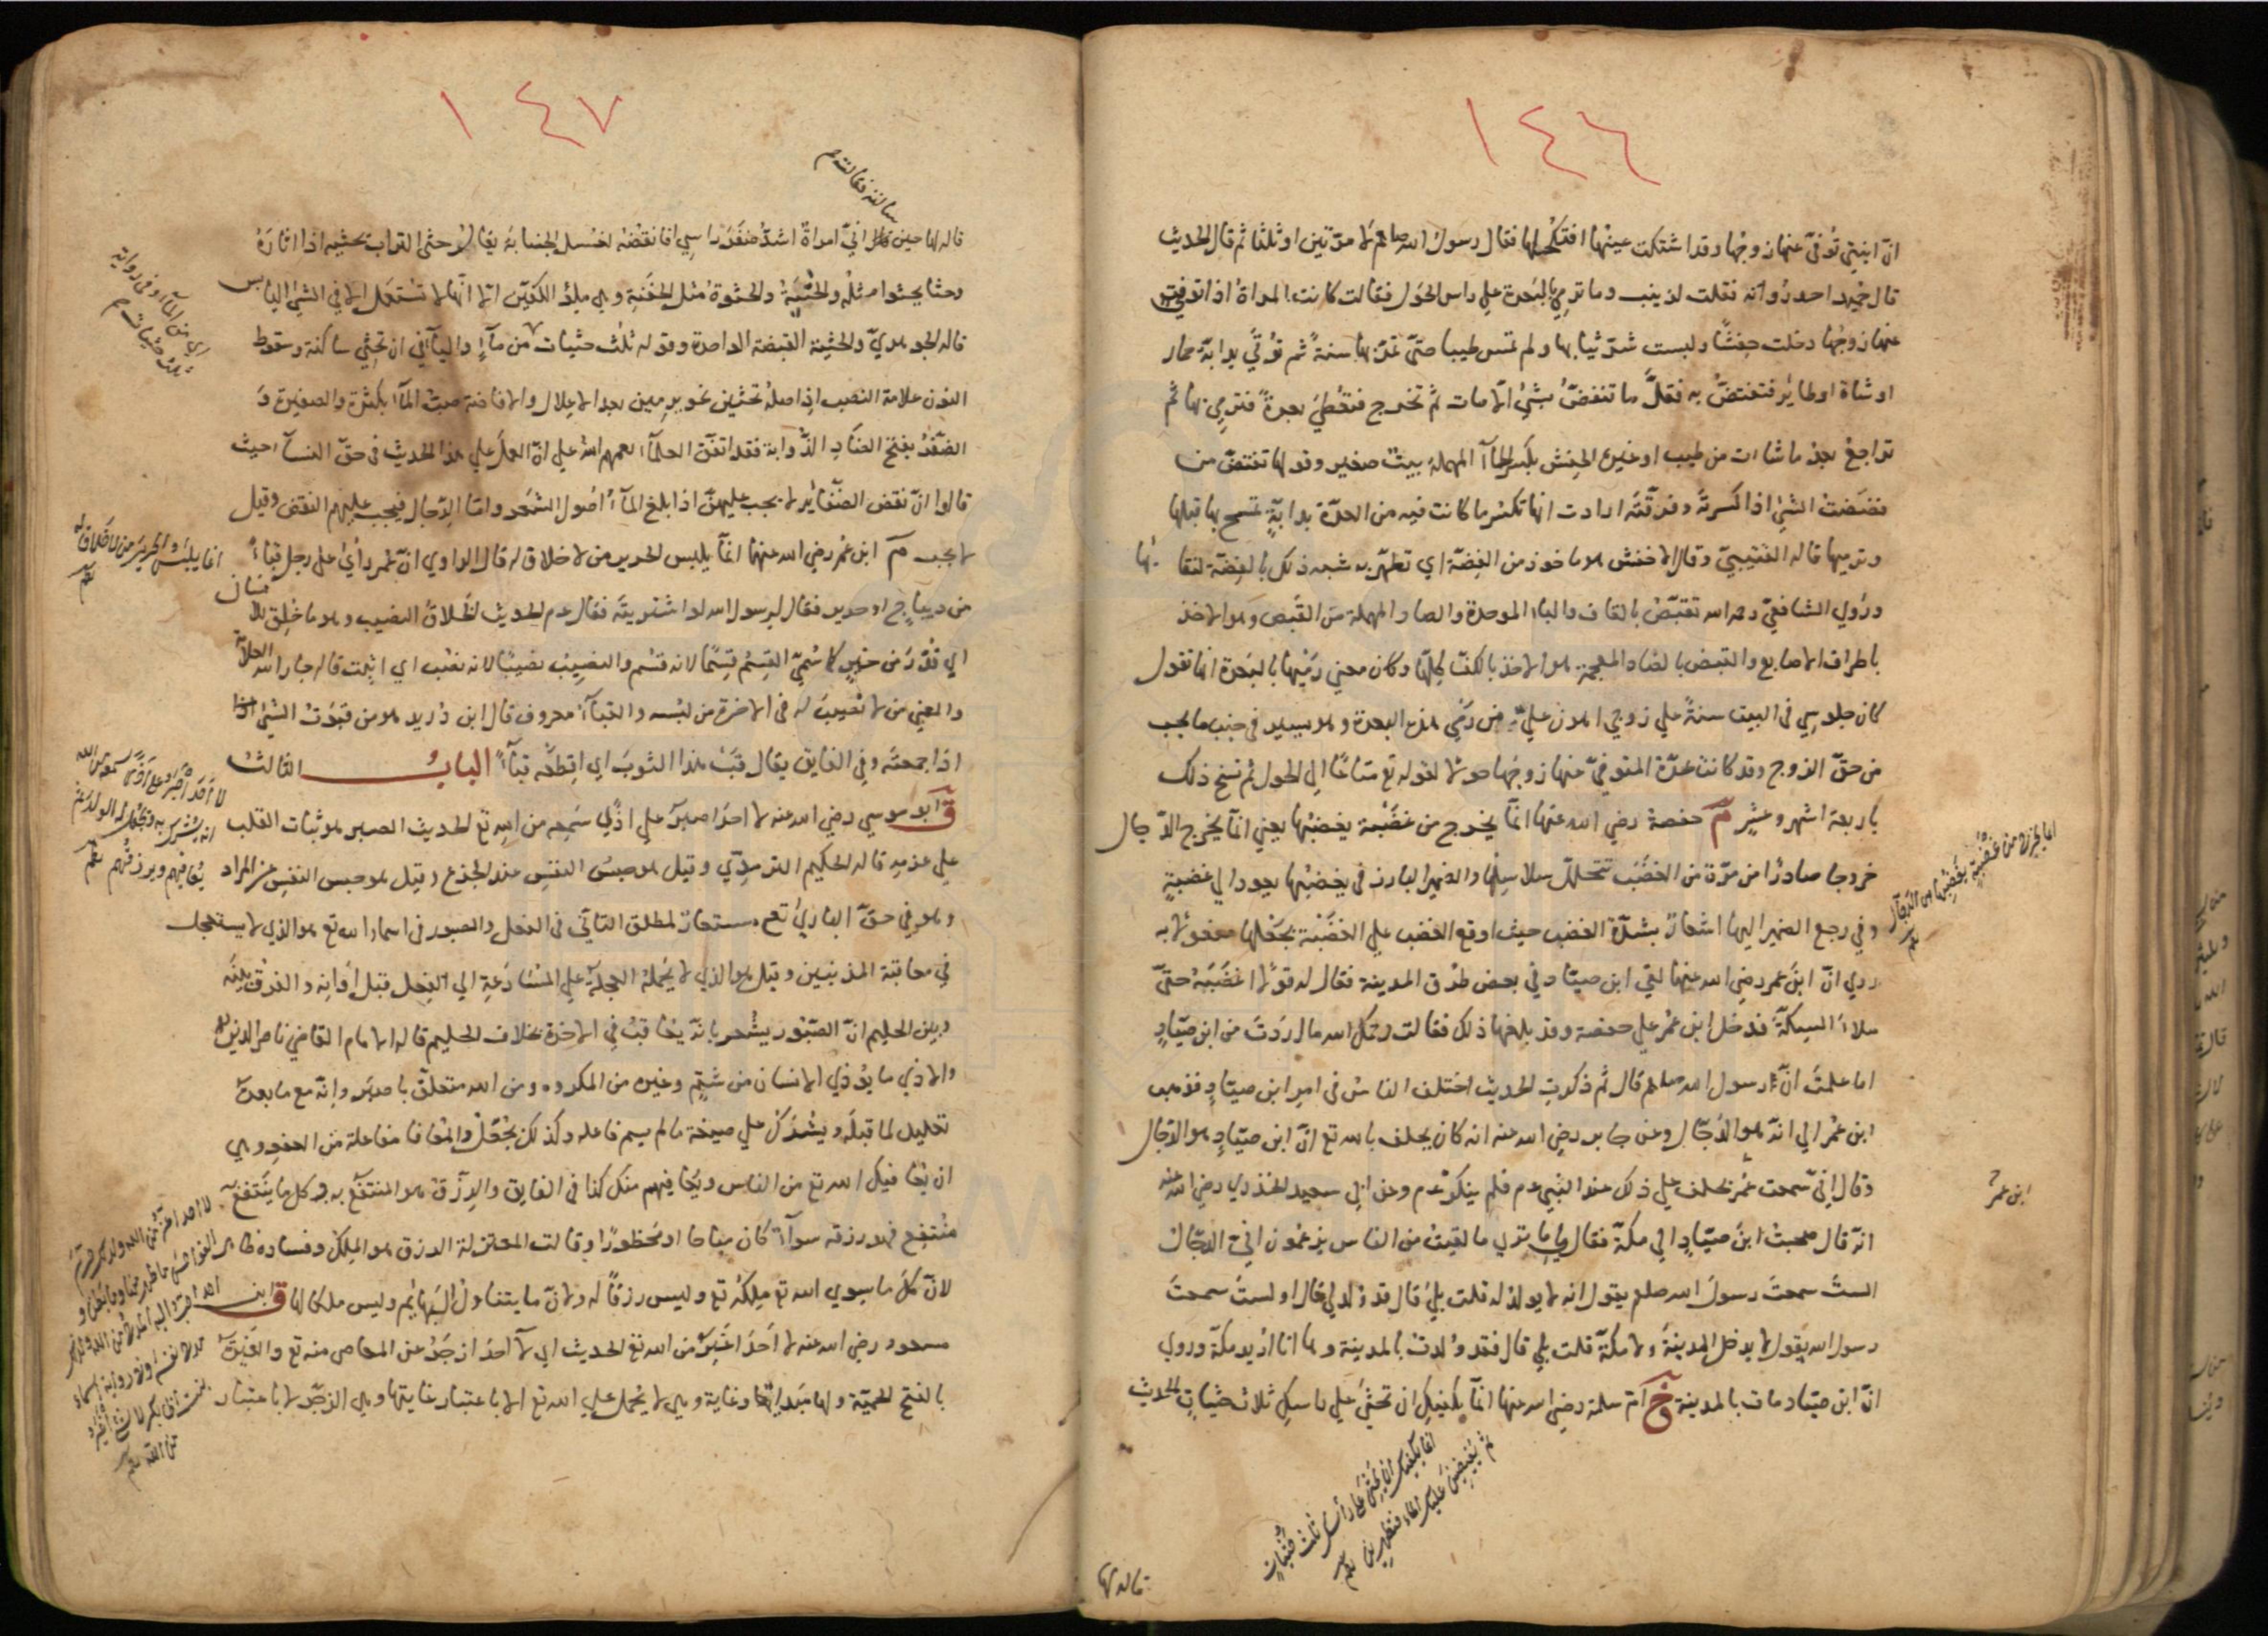 ١٤٦
انّ ابنتي تُوفّي عنها زوجُها وقد اشتكت عينُها افتكحلُها فقال رسول الله صلعم لا مرّتين او ثلثا ثم قال الحديث
قال حُمَيد احد رُواته فقلت لزينب وما ترمي بالبَعرة على راس الحَول فقالت كانت المراة اذا تُوفّي
عنها زوجُها دخلت حِفشًا ولبست شرّ ثيابها ولم تمس طيبا حتى تمرّ بها سنةٌ ثم تُؤتَى بدابة حمار
او شاة او طائر فتفتضّ به فقلّ ما تفتضّ بشيء الا مات ثم تخرج فتُعطَى بعرةً فترمي بها ثم
تراجع بعد ما شاءت من طيب او غيره الحِفش بكسر الحاء المهملة بيت صغير وقولها تفتضّ من
فضضتُ الشيء اذا كسرتَه وفرّقتَه ارادت انها تكسر ما كانت فيه من العدّة بدابةٍ تمسح بها قبلها
وترميها قاله القُتَيبيّ وقال الاخفش هو ماخوذ من الفِضّة اي تطهّر به شبه ذلك بالفِضّة لنقائها
ورَوَى الشافعيّ رحمه الله تقبّصُ بالقاف والباء الموحدة والصاد المهملة من القَبص وهو الاخذ
باطراف الاصابع والقبض بالضاد المعجمة هو الاخذ بالكفّ كلّها وكان معنى رَمْيها بالبَعرة انها تقول
كان جلوسي في البيت سنةً على زوجي اهون عليّ من رَمْي هذه البعرة وهو يسير في جنب ما يجب
من حقّ الزوج وقد كانت عدّة المتوفّى عنها زوجُها حولا لقوله تع متاعًا الى الحول ثم نسخ ذلك
باربعة اشهر وعشرٍ م حفصة رضي الله عنها انّما يخرج من غَضْبة يغضبُها يعني انّما يخرج الدّجال
خروجا صادرًا من مرّة من الغَضَب تتحلّل سلاسلُها والضمير البارز في يغضبُها يعود الى غضبةٍ
وفي رجع الضمير اليها اشعارٌ بشدّة الغضب حيث اوقع الغضب على الغَضْبة بجَعْلها مفعولا به
روي انّ ابنَ عمر رضي الله عنهما لقي ابن صيّاد في بعض طرُق المدينة فقال له قولا اغضَبَهُ حتّى
ملاءَ السِكّة فدخل ابن عُمر على حفصة وقد بلغها ذلك فقالت رحمك الله ما اردتَ من ابن صيّادٍ
اما علمتَ انّ رسول الله صلعم قال ثم ذكرت الحديث اختلف الناسُ في امر ابن صيّادٍ فذهب
ابن عُمر الى انّه هو الدَّجّال وعن جابر رضي الله عنه انه كان يحلف بالله تع انّ ابن صيّادٍ هو الدّجّال
وقال إنّي سمعت عُمر يحلف على ذلك عند النبي عم فلم ينكره عم وعن ابي سعيد الخدري رضي الله عنه
انّه قال صحبتُ ابنَ صيّادٍ الى مكّة فقال لي ما ترى ما لقيتُ من الناس يزعُمون انّي الدجّال
الستَ سمعتَ رسولَ الله صلعم يقول انه لا يولد له قلت بلى قال قد وُلد لي قال او لستَ سمعتَ
رسول الله يقول لا يدخل المدينة ولا مكّة قلت بلى قال فقد وُلدتُ بالمدينة وها انا اُريد مكّة وروي
انّ ابن صيّاد مات بالمدينة خ امّ سلمة رضي الله عنها انّما يكفيك ان تحثي على راسك ثلاث حثياتٍ الحديث
انما يخرج من غضبةٍ يغضبها اي الدّجّال
ابن عمر
انما يكفيك ان تحثي على رأسك ثلث حثياتٍ
ثم تفيضين عليك الماء فتطهرين
قاله لها
١٤٧
سالته فقالت
قاله لها حين قالت انّي امراة اشدّ ضفْرَ راسي افانقضُه لغسل الجنابة يقال حثى التراب يحثيه اذا اثارَهُ
وحثا يحثوا مثلُه والحَثْيَةُ والحثوةُ مثل الحَفنة وهي مِلؤ الكفّين الا انّها لا تستعمل الا في الشيء اليابس
قاله الجوهريّ والحثية القبضة الواحدة وقوله ثلث حثيات من ماءٍ والياء في ان تحثِي ساكنة وسقوط
النون علامة النصب اذ اصله تحثين نحو يرمين بعد الاعلال والافاضة صبّ الماء بكثرة والضفيرة وَ
الضّفرُ بفتح الضاد الذّوابة فقد اتفق العلماء رحمهم الله على انّ العمل على هذا الحديث في حقّ النساء حيث
قالوا انّ نقض الضّفائر لا يجب عليهنّ اذا بلغ الماءُ اُصول الشَعْر وامّا الرّجال فيجب عليهم النقض وقيل
لا يجب م ابن عُمر رضي الله عنهما انّما يلبس الحرير من لا خلاق له قال الراوي انّ عُمر راَى على رجل قباءً
من ديباج او حرير فقال لرسول الله لو اشتريتَه فقال عم الحديث الخَلاقُ النصيب وهو ما خُلِق له
اي قدّر من خيرٍ كما سُمّي القِسمُ قِسمًا لانه قسّم والنصيبُ نصيبًا لانه نصب اي اثبت قاله جار الله العلامة
والمعنى من لا نصيبَ له في الاخرة من لبسه والقباءُ معروف قال ابن دُريد هو من قبَوتُ الشيء
اذا جمعتَه وفي الفايق يقال قبّ هذا الثوبَ اي اقطعْه قباءً البابُ الثالث
ق ابو موسى رضي الله عنه لا احدَ اصبرَ على اذًى سَمِعه من الله تع الحديث الصبر هو ثبات القلب
على عزمه قاله الحكيم الترمِذي وقيل هو حبسُ النفس عند الجزع وقيل هو حبس النفس عن المراد
وهو في حقّ البارئ تع مستعار لمطلق التاَنّي في الفعل والصبور في اسماء الله تع هو الذي لا يستعجل
في معاقبة المذنبين وقيل هو الذي لا يحمله العجلةُ على المُسارَعة الى الفِعل قبل اوانه والفرْق بينَه
وبين الحليم انّ الصّبور يشعر بانّه يعاقب في الاخرة بخلاف الحليم قاله الامام القاضي ناصر الدين
والاذى ما يؤذي الانسان من شتمٍ وغيره من المكروه ومن الله متعلّق باصبرَ وإنّه مع ما بعده
تعليل لما قبله ويُشرَك على صيغة ما لم يسم فاعله وكذلك يُجْعَلُ والمُعافا مفاعلة من العفو وهي
ان يُعافيك الله تع من الناس ويُعافيهم منك كذا في الفايق والرِزْقُ هو المنتفَع به وكل ما ينتفع
مُنتفِع فهو رزقه سواءٌ كان مباحا او مَحظورًا وقالت المعتزلة الرزق هو المِلكُ وفساده ظاهر
لانّ كلّ ما سوى الله تع مِلكُه تع وليس رزقًا له ولانّ ما يتناول البَهائم وليس ملكا لها ق ابن
مسعود رضي الله عنه لا اَحدَ اغيرَ من الله تع الحديث اي لا احدَ ازجَرُ عن المعاصي منه تع والغَيْرَةُ
بالفتح الحميّة ولها مَبداءٌ وغاية وهي لا يُحمل على الله تع الا باعتبار غايتها وهي الزجْر لا باعتبار
اي من الماء وفي رواية
ثلث حثيات
انما يلبس الحريرَ من لا خلاق له
لا أحدَ أصبرُ على أذًى سمعه من الله
انه يُشرَك به ويُجعَل له الولد ثم
يُعافيهم ويرزقُهم
لا احد اغيرُ من الله ولذلك حرّمَ
الفواحش ما ظهر منها وما بطن و